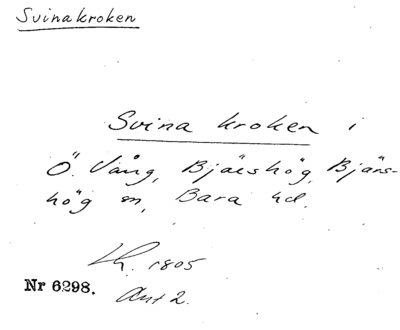 Svinakroken
Svina kroken i
Ö. Vång, Bjäeshög, Bjärs-
hög sn, Bara hd.
Lh. 1805
Nr 6298.
Akt 2.